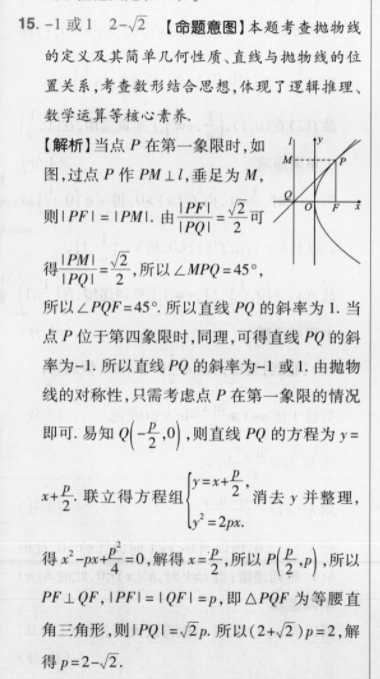 15. -1 或 1　2-√2　【命题意图】本题考查抛物线
的定义及其简单几何性质、直线与抛物线的位
置关系,考查数形结合思想,体现了逻辑推理、
数学运算等核心素养.
【解析】当点 P 在第一象限时,如
图,过点 P 作 PM⊥l,垂足为 M,
则|PF|=|PM|. 由|PF|/|PQ|=√2/2可
得|PM|/|PQ|=√2/2,所以∠MPQ=45°,
l y
M P
Q O F x
所以∠PQF=45°. 所以直线 PQ 的斜率为 1. 当
点 P 位于第四象限时,同理,可得直线 PQ 的斜
率为-1. 所以直线 PQ 的斜率为-1 或 1. 由抛物
线的对称性,只需考虑点 P 在第一象限的情况
即可. 易知 Q(-p/2,0),则直线 PQ 的方程为 y=
x+p/2. 联立得方程组{y=x+p/2, y²=2px. 消去 y 并整理,
得 x²-px+p²/4=0,解得 x=p/2,所以 P(p/2,p),所以
PF⊥QF,|PF|=|QF|=p,即△PQF 为等腰直
角三角形,则|PQ|=√2p. 所以(2+√2)p=2,解
得 p=2-√2.